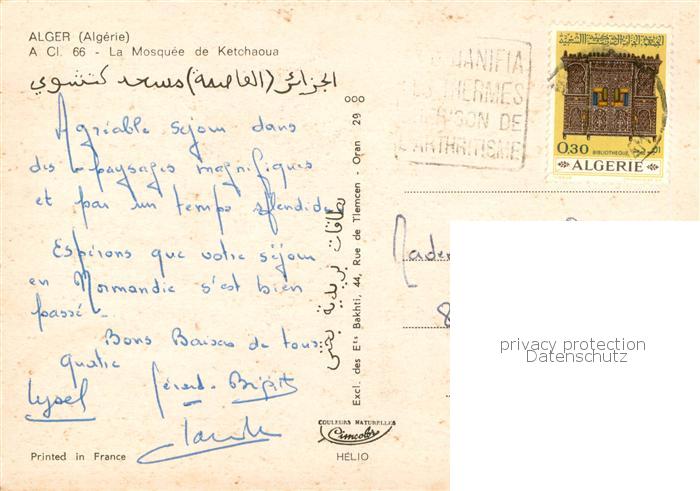 ALGER (Algérie)
A Cl. 66 - La Mosquée de Ketchaoua
الجزائر (العاصمة) مسجد كتشوي
Agréable séjour dans
des paysages magnifiques
et par un temps splendide
Espérons que votre séjour
en Normandie s'est bien
passé.
Bons Baisers de tous
quatre
Gérard
Printed in France
بطاقات بريدية بختي
Excl. des Ets Bakhti, 44, Rue de Tlemcen - Oran 29 000
COULEURS NATURELLES
Cimcolor
HELIO
THERMES
DE
L'ARTHRITISME
0,30 BIBLIOTHEQUE
ALGERIE
privacy protection
Datenschutz